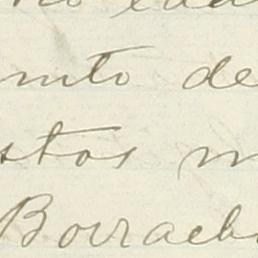 mto de
stos m
Borrach